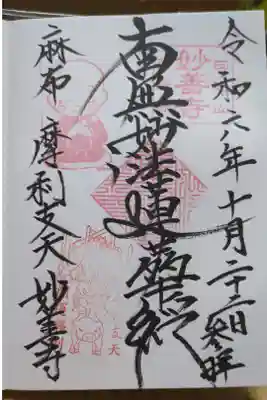 令和六年十月二十二日参拝
妙善寺
南無妙法蓮華経
麻布 摩利支天 妙善寺
支天